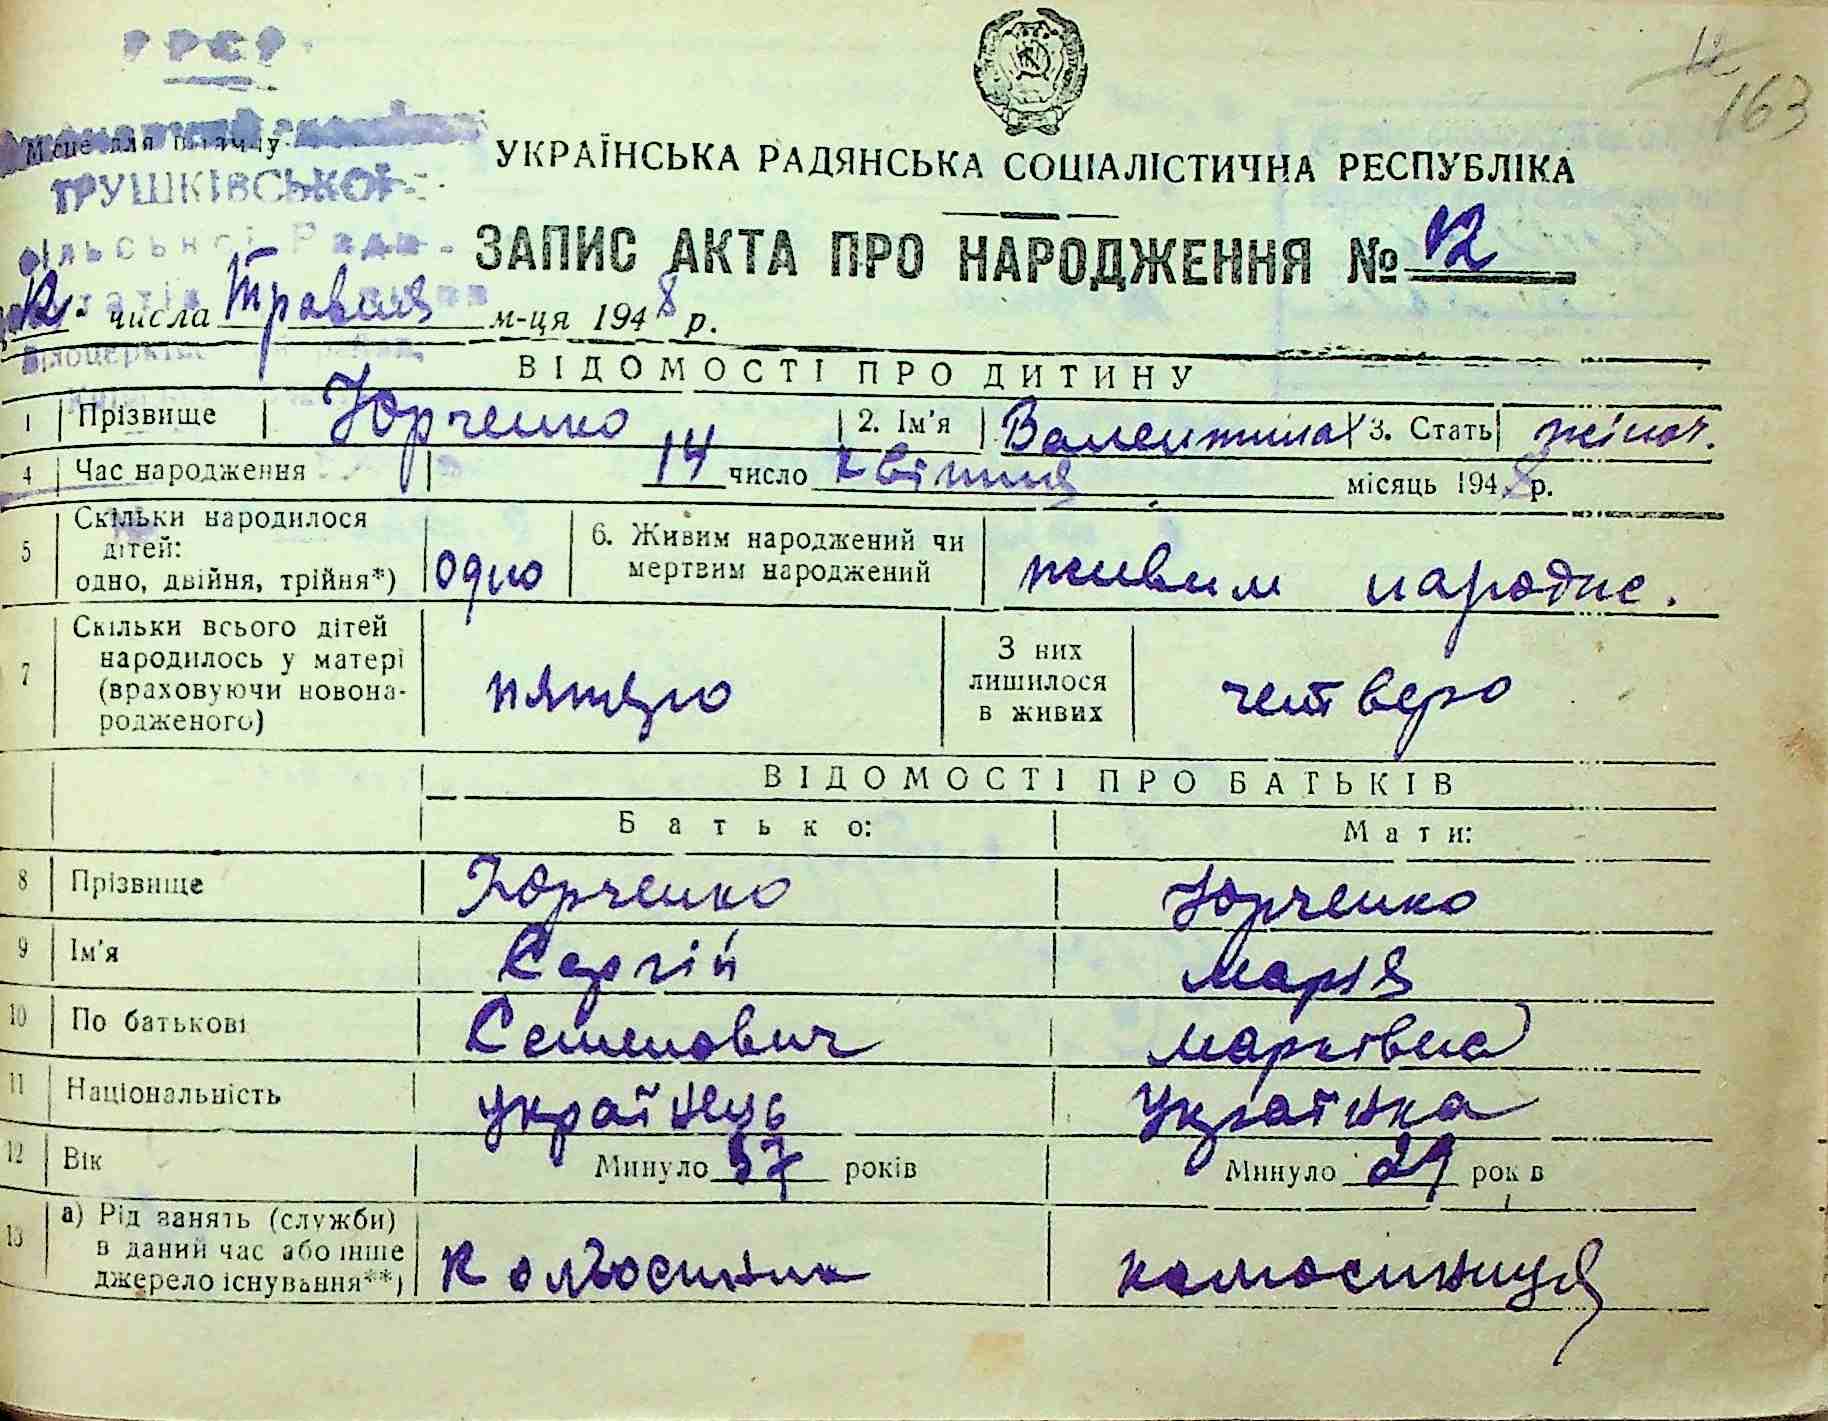 УРСР
12
163
Місце для штампу
УКРАЇНСЬКА РАДЯНСЬКА СОЦІАЛІСТИЧНА РЕСПУБЛІКА
ТРУШКІВСЬКОЇ
сільської Ради
ЗАПИС АКТА ПРО НАРОДЖЕННЯ № 12
12 числа Травня м-ця 1948 р.
ВІДОМОСТІ ПРО ДИТИНУ
1 Прізвище Юрченко 2. Ім'я Валентина 3. Стать жіноч.
4 Час народження 14 число квітня місяць 1948 р.
5 Скільки народилося
дітей:
одно, двійня, трійня*) одно 6. Живим народжений чи
мертвим народжений живим народже.
7 Скільки всього дітей
народилось у матері
(враховуючи новона-
родженого) пятеро З них
лишилося
в живих четверо
ВІДОМОСТІ ПРО БАТЬКІВ
Батько: Мати:
8 Прізвище Юрченко Юрченко
9 Ім'я Сергій Марія
10 По батькові Семенович Марківна
11 Національність українець Українка
12 Вік Минуло 37 років Минуло 29 років
13 а) Рід занять (служби)
в даний час або інше
джерело існування**) Колгоспник колгоспниця